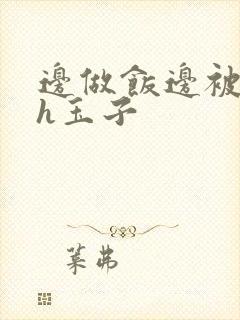 邊做飯邊被
h玉子
葉弗